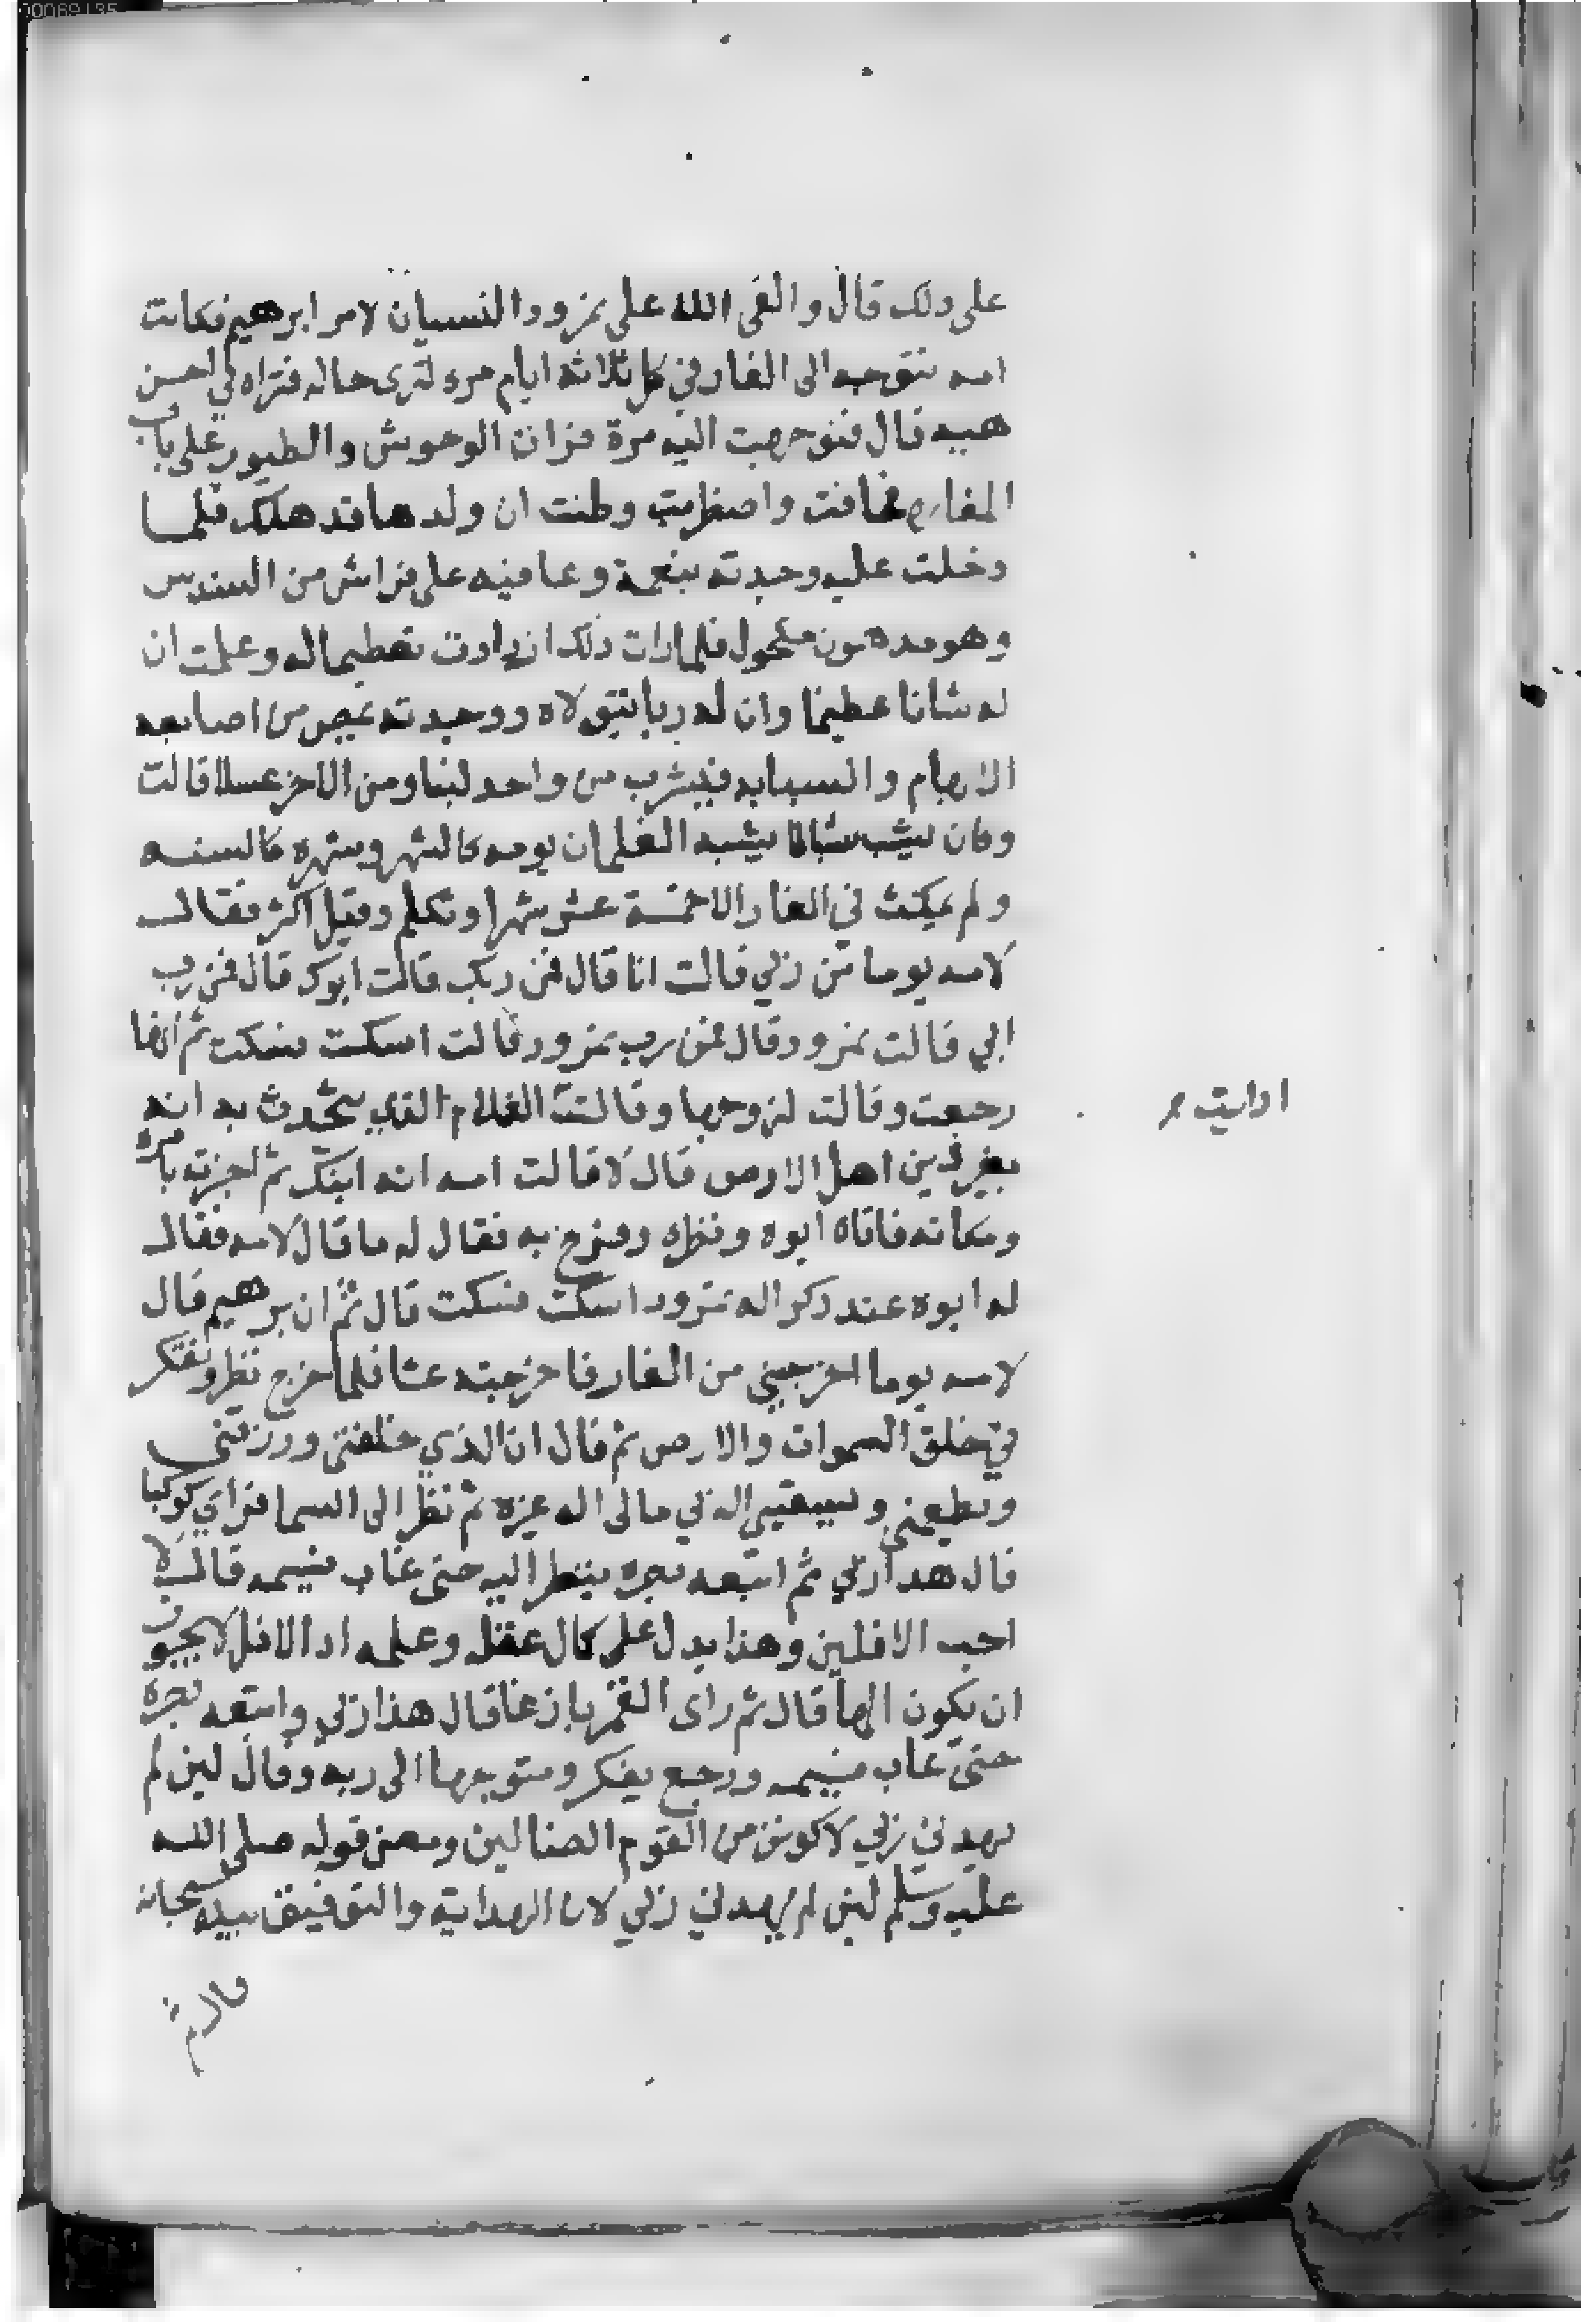 على دلك قال والقى الله على نمرود النسيان لامر ابرهيم فكانت
امه تتوجه الى الغار في كل ثلاثة ايام مره لترى حاله فتراه في احسن
هييه قال فتوجهت اليه مرة فرات الوحوش والطيور على باب
المغاره فخافت واضطربت وظنت ان ولدها قد هلك فلما
دخلت عليه وجدته بنعمة وعافيه على فراش من السندس
وهو مدهون مكحول فلما رات ذلك ازدادت تعظيما له وعلمت ان
له شانا عظيما وان له ربا يتولاه ووجدته يمص من اصابعه
الابهام والسبابه فيشرب من واحد لبنا ومن الاخر عسلا قالت
وكان يشب شبابا لا يشبه الغلمان يومه كالشهر وشهره كالسنه
ولم يمكث في الغار الا خمسة عشر شهرا وتكلم وقيل اكثر فقال
لامه يوما من ربي قالت انا قال فمن ربك قالت ابوك قال فمن رب
ابي قالت نمرود قال فمن رب نمرود قالت اسكت فسكت ثم انها
رجعت وقالت لزوجها وقالت الغلام الذي يتحدث به انه
ارايت
يغير دين اهل الارض قال لا قالت امه انه ابنك ثم اخبرته بامره
ومكانه فاتاه ابوه ونظره وفرح به فقال له ما قال لامه فقال
له ابوه عند ذكر اله نمرود اسكت فسكت قال ثم ان برهيم قال
لامه يوما اخرجيني من الغار فاخرجته عشا فلما خرج نظر وتفكر
في خلق السموات والارض ثم قال ان الذي خلقني ورزقني
ويطعمني ويسقيني الذي مالي اله غيره ثم نظر الى السما فراى كوكبا
قال هدا ربي ثم اتبعه بصره ينظر اليه حتى غاب قال لا
احب الافلين وهذا يدل على كمال عقله وعلمه اد الافل لا يجوز
ان يكون الها قال ثم راى القمر بازغا قال هذا ربي واتبعه بصره
حتى غاب ورجع يفكر ومتوجها الى ربه وقال لين لم
يهدني ربي لاكونن من القوم الضالين ومعنى قوله صلى الله
عليه وسلم لين لم يهدني ربي لان الهداية والتوفيق بيده سبحانه
قال ثم